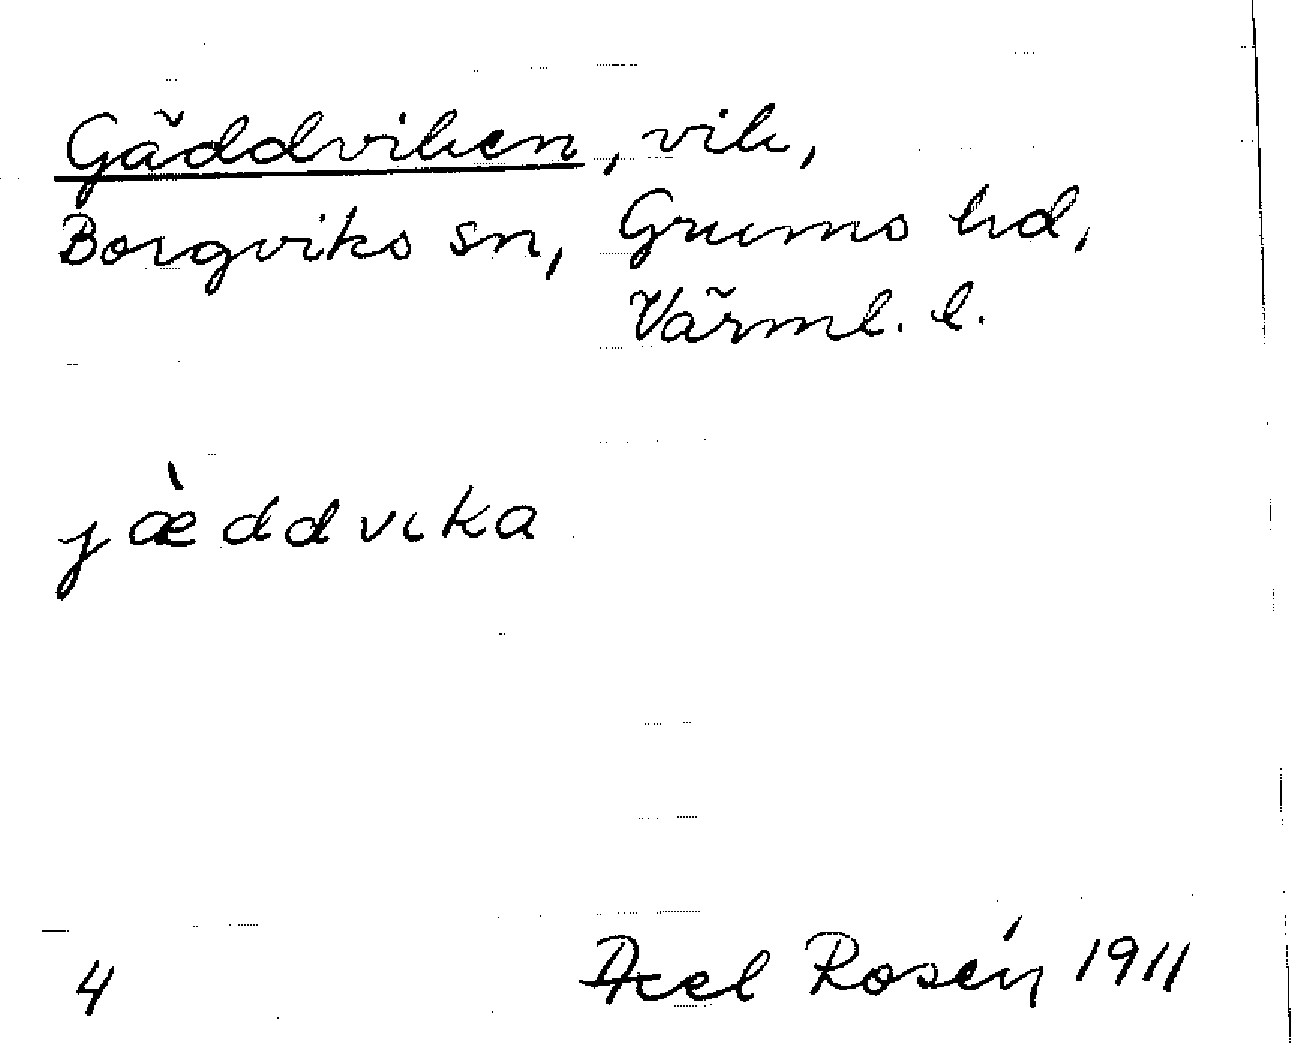 Gäddviken, vik,
Borgviks sn, Grums hd,
Värml. l.
jæ̀ddvika
4 Axel Rosén 1911